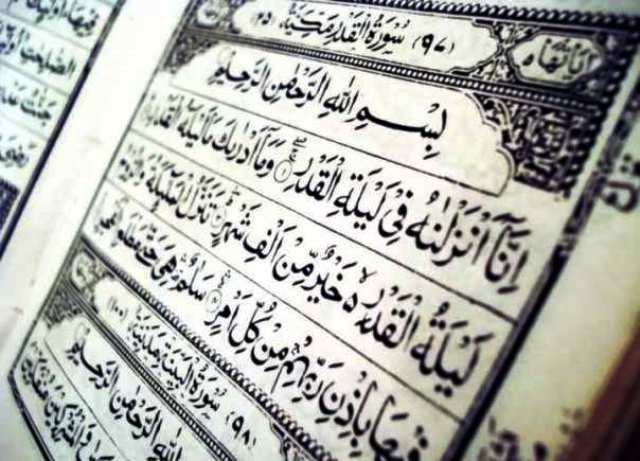 اياتها ٥
(٩٧) سُوْرَةُ الْقَدْرِ مَكِّيَّةٌ (٢٥)
بِسْمِ اللهِ الرَّحْمٰنِ الرَّحِيْمِ
اِنَّاۤ اَنْزَلْنٰهُ فِيْ لَيْلَةِ الْقَدْرِ ۝١ وَمَاۤ اَدْرٰىكَ مَا لَيْلَةُ الْقَدْرِ
لَيْلَةُ الْقَدْرِ ۙ خَيْرٌ مِّنْ اَلْفِ شَهْرٍ ۝٣ تَنَزَّلُ الْمَلٰٓئِكَةُ وَالرُّوْحُ
فِيْهَا بِاِذْنِ رَبِّهِمْ مِنْ كُلِّ اَمْرٍ ۝٤ سَلٰمٌ هِيَ حَتّٰى مَطْلَعِ
(٩٨) سُوْرَةُ الْبَيِّنَةِ مَدَنِيَّةٌ (١٠٠)
اللهِ الرَّحْمٰنِ الرَّحِيْمِ
وَالْمُشْرِكِيْنَ مُنْفَكِّيْنَ